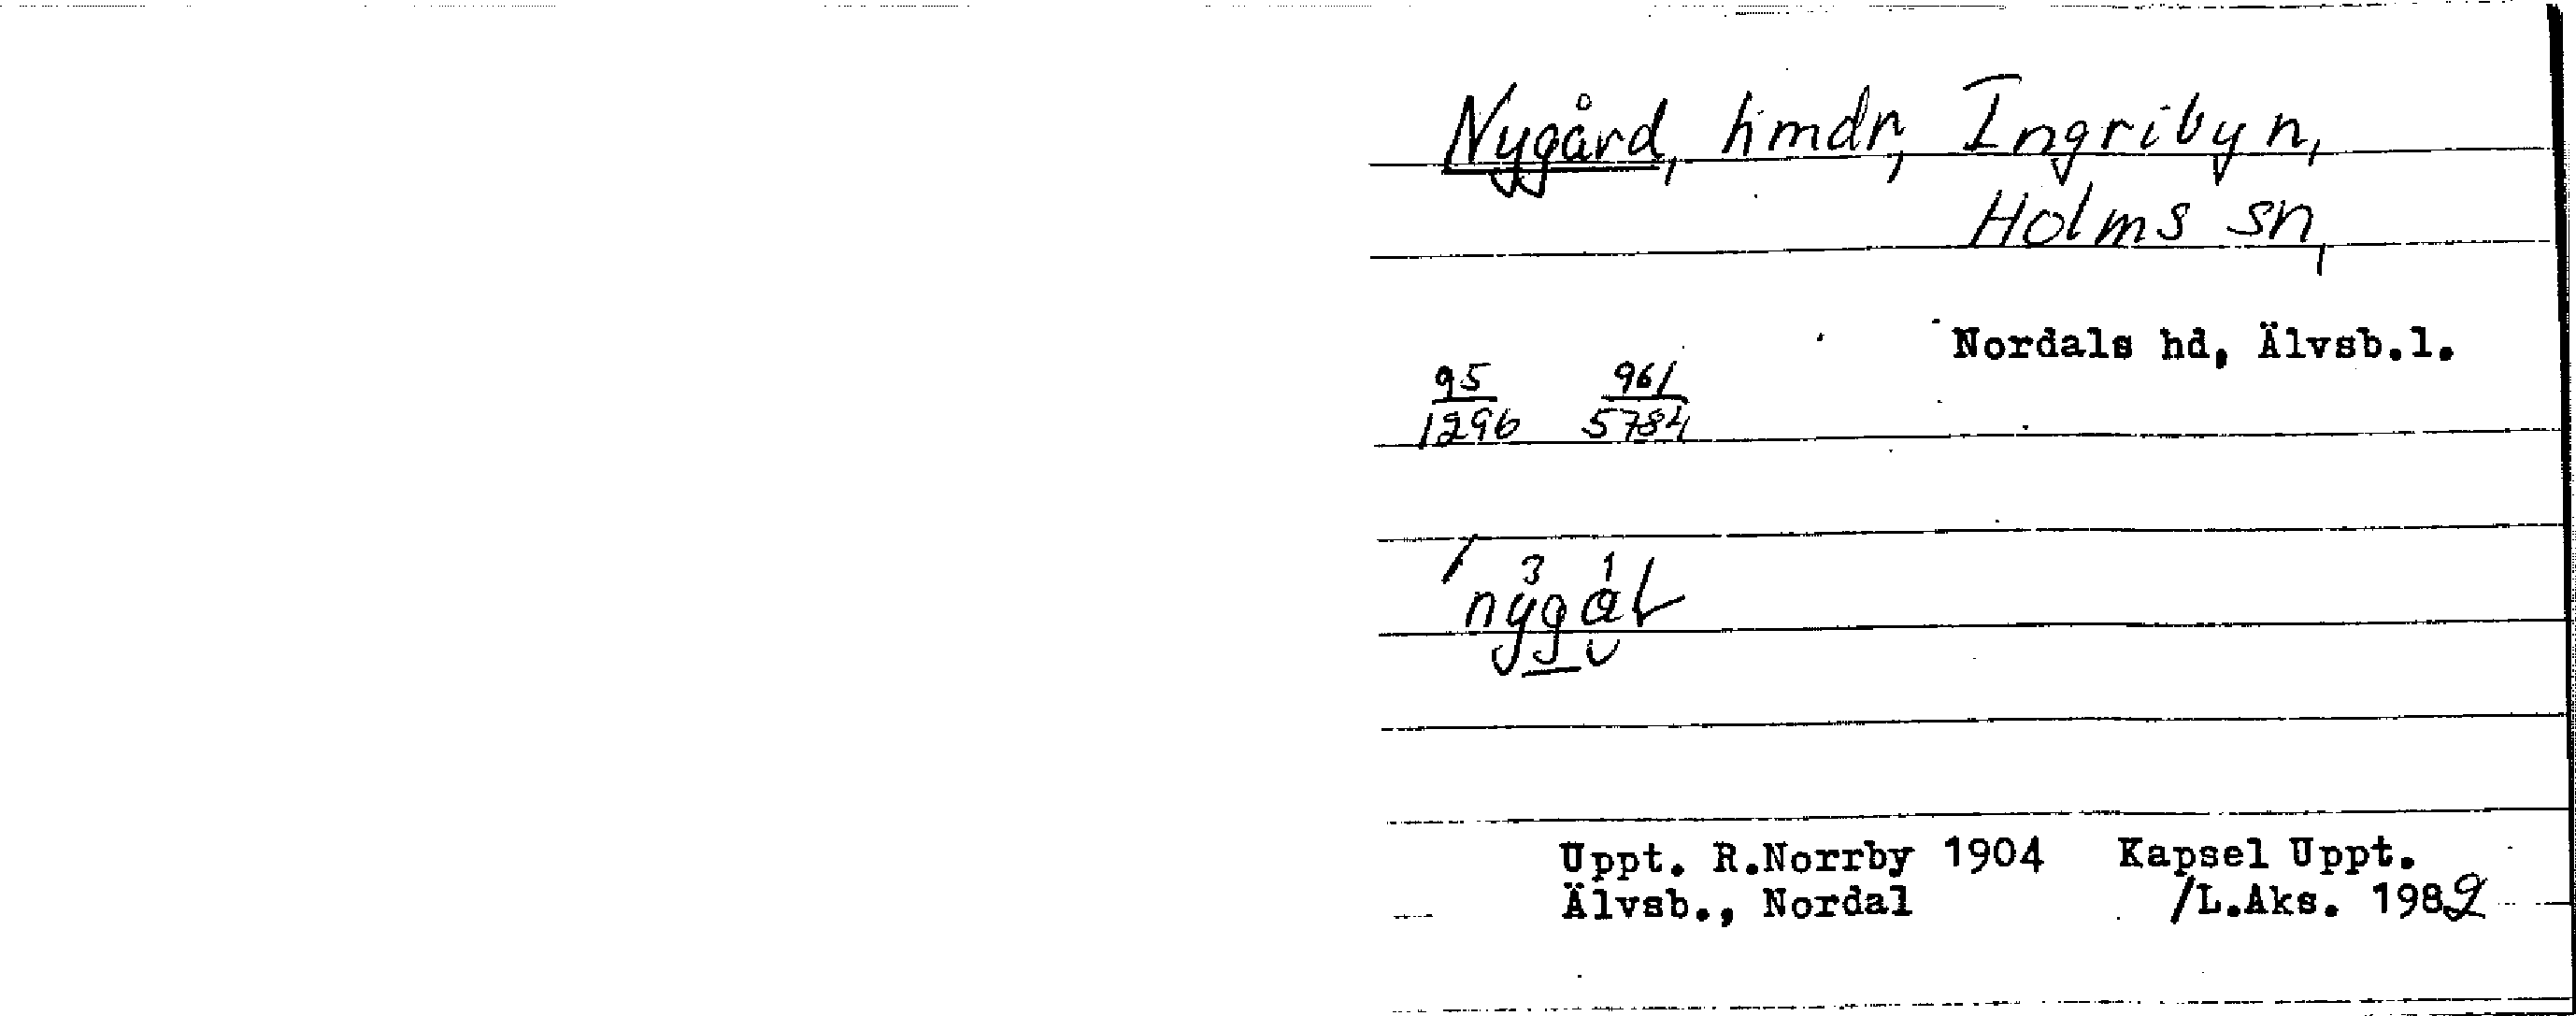 Nygård, hmdr, Ingribyn,
Holms sn,
Nordals hd, Älvsb.l.
95 961
1296 5784
Uppt. R.Norrby 1904 Kapsel Uppt.
Älvsb., Nordal /L.Aks. 1982